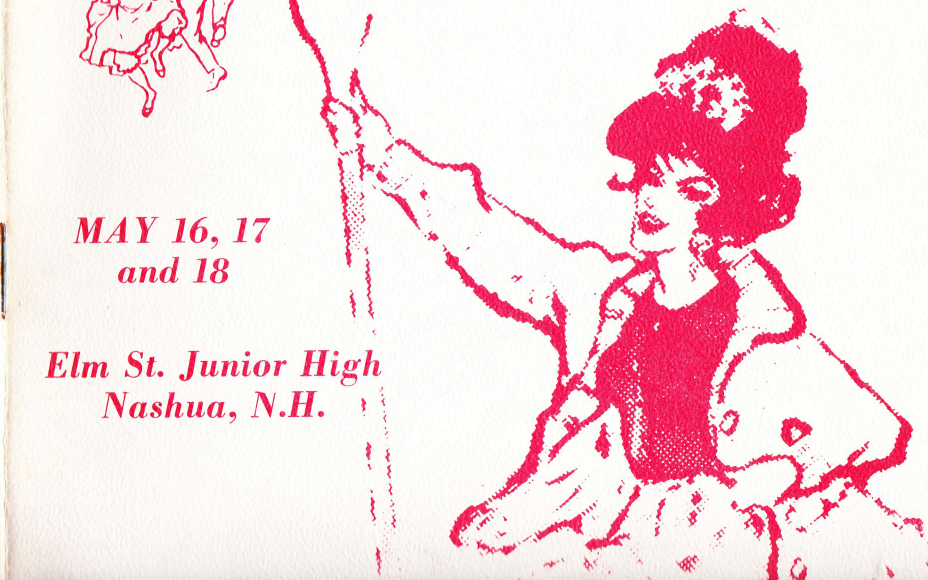 MAY 16, 17
and 18
Elm St. Junior High
Nashua, N.H.